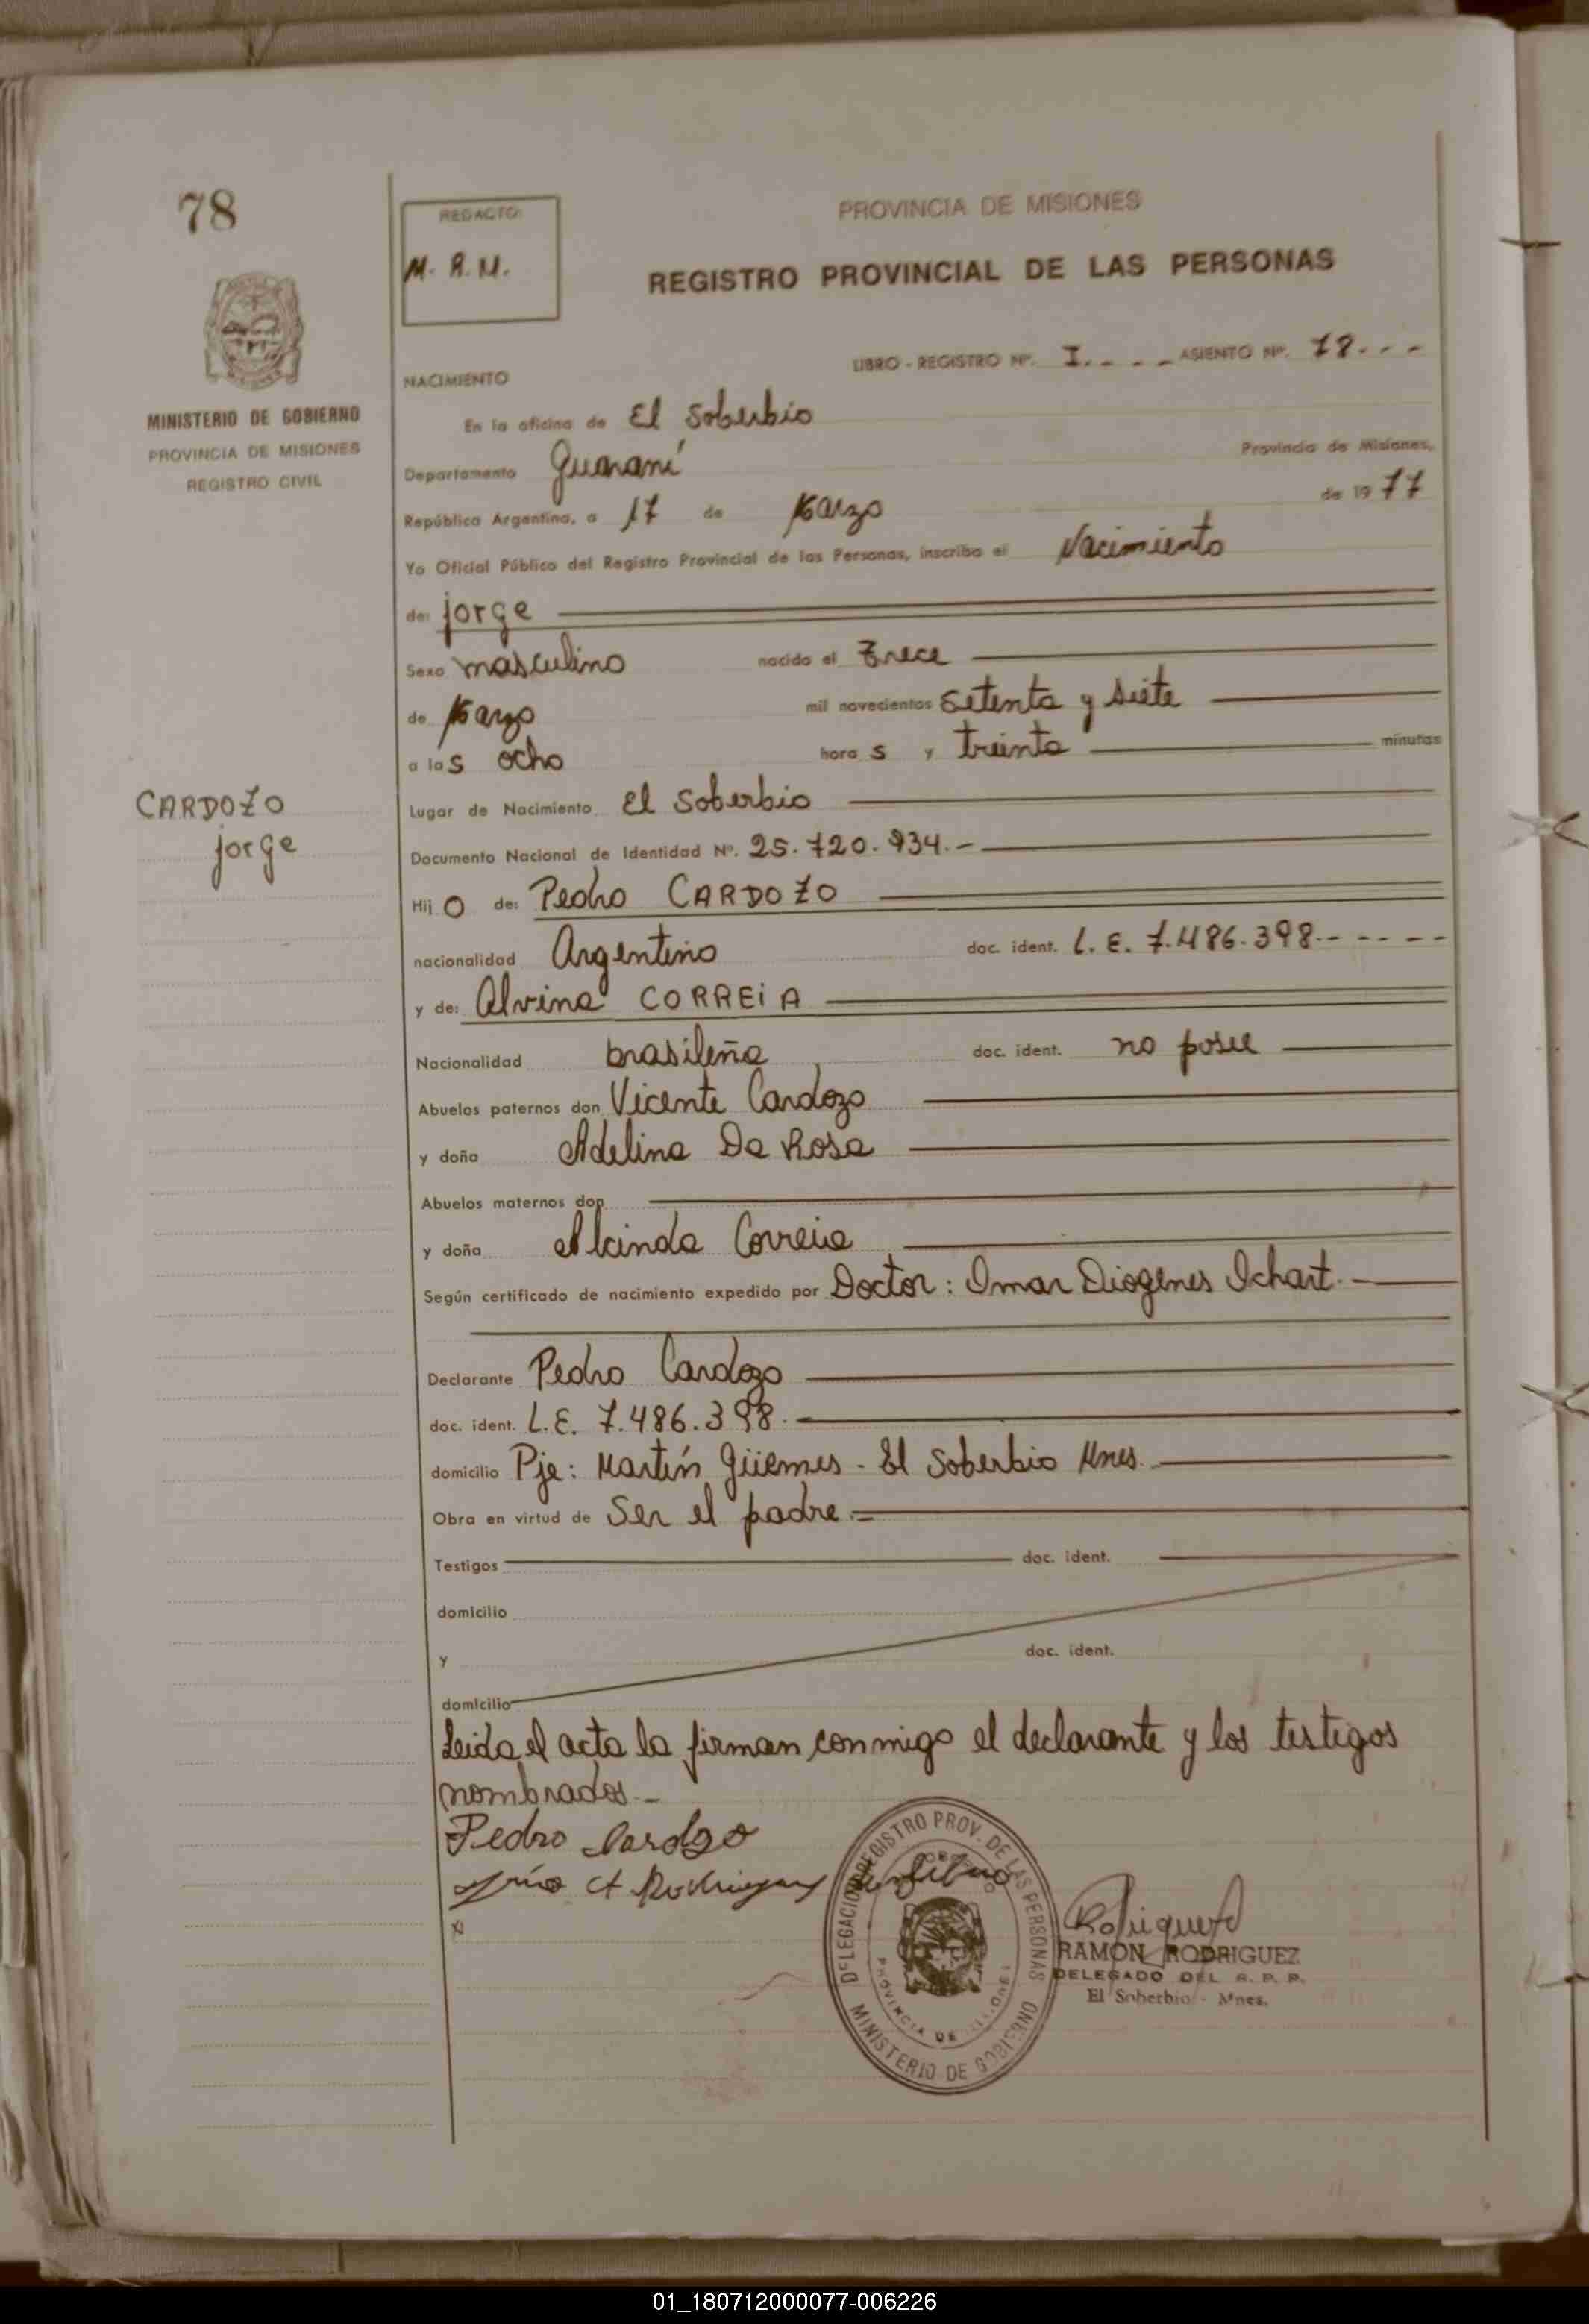 78
REDACTO:
M. R. M.
PROVINCIA DE MISIONES
REGISTRO PROVINCIAL DE LAS PERSONAS
MINISTERIO DE GOBIERNO
PROVINCIA DE MISIONES
REGISTRO CIVIL
LIBRO - REGISTRO Nº. I. - - - ASIENTO Nº. 78 - - -
NACIMIENTO
En la oficina de El Soberbio
Departamento Guaraní Provincia de Misiones,
República Argentina, a 17 de Marzo de 1977
Yo Oficial Público del Registro Provincial de las Personas, inscribo el Nacimiento
de: jorge
Sexo masculino nacido el Trece
de Marzo mil novecientos Setenta y Siete
a las ocho horas y treinta minutos
CARDOZO
jorge
Lugar de Nacimiento El Soberbio
Documento Nacional de Identidad Nº. 25.720.934.-
Hijo de: Pedro CARDOZO
nacionalidad Argentino doc. ident. L. E. 7.486.398.- - - - -
y de: Alvina CORREiA
Nacionalidad brasileña doc. ident. no posee
Abuelos paternos don Vicente Cardozo
y doña Adelina Da Rosa
Abuelos maternos don
y doña Alcinda Correia
Según certificado de nacimiento expedido por Doctor: Omar Diogenes Ichart.-
Declarante Pedro Cardozo
doc. ident. L.E. 7.486.398.-
domicilio Pje: Martín Güemes - El Soberbio Mnes.
Obra en virtud de Ser el padre.=
Testigos doc. ident.
domicilio
y doc. ident.
domicilio
Leida el acta la firman conmigo el declarante y los testigos
nombrados.-
Pedro Cardozo
DELEGACION REGISTRO PROV. DE LAS PERSONAS
PROVINCIA DE MISIONES
MINISTERIO DE GOBIERNO
RAMON RODRIGUEZ
DELEGADO DEL R. P. P.
El Soberbio - Mnes.
01_180712000077-006226